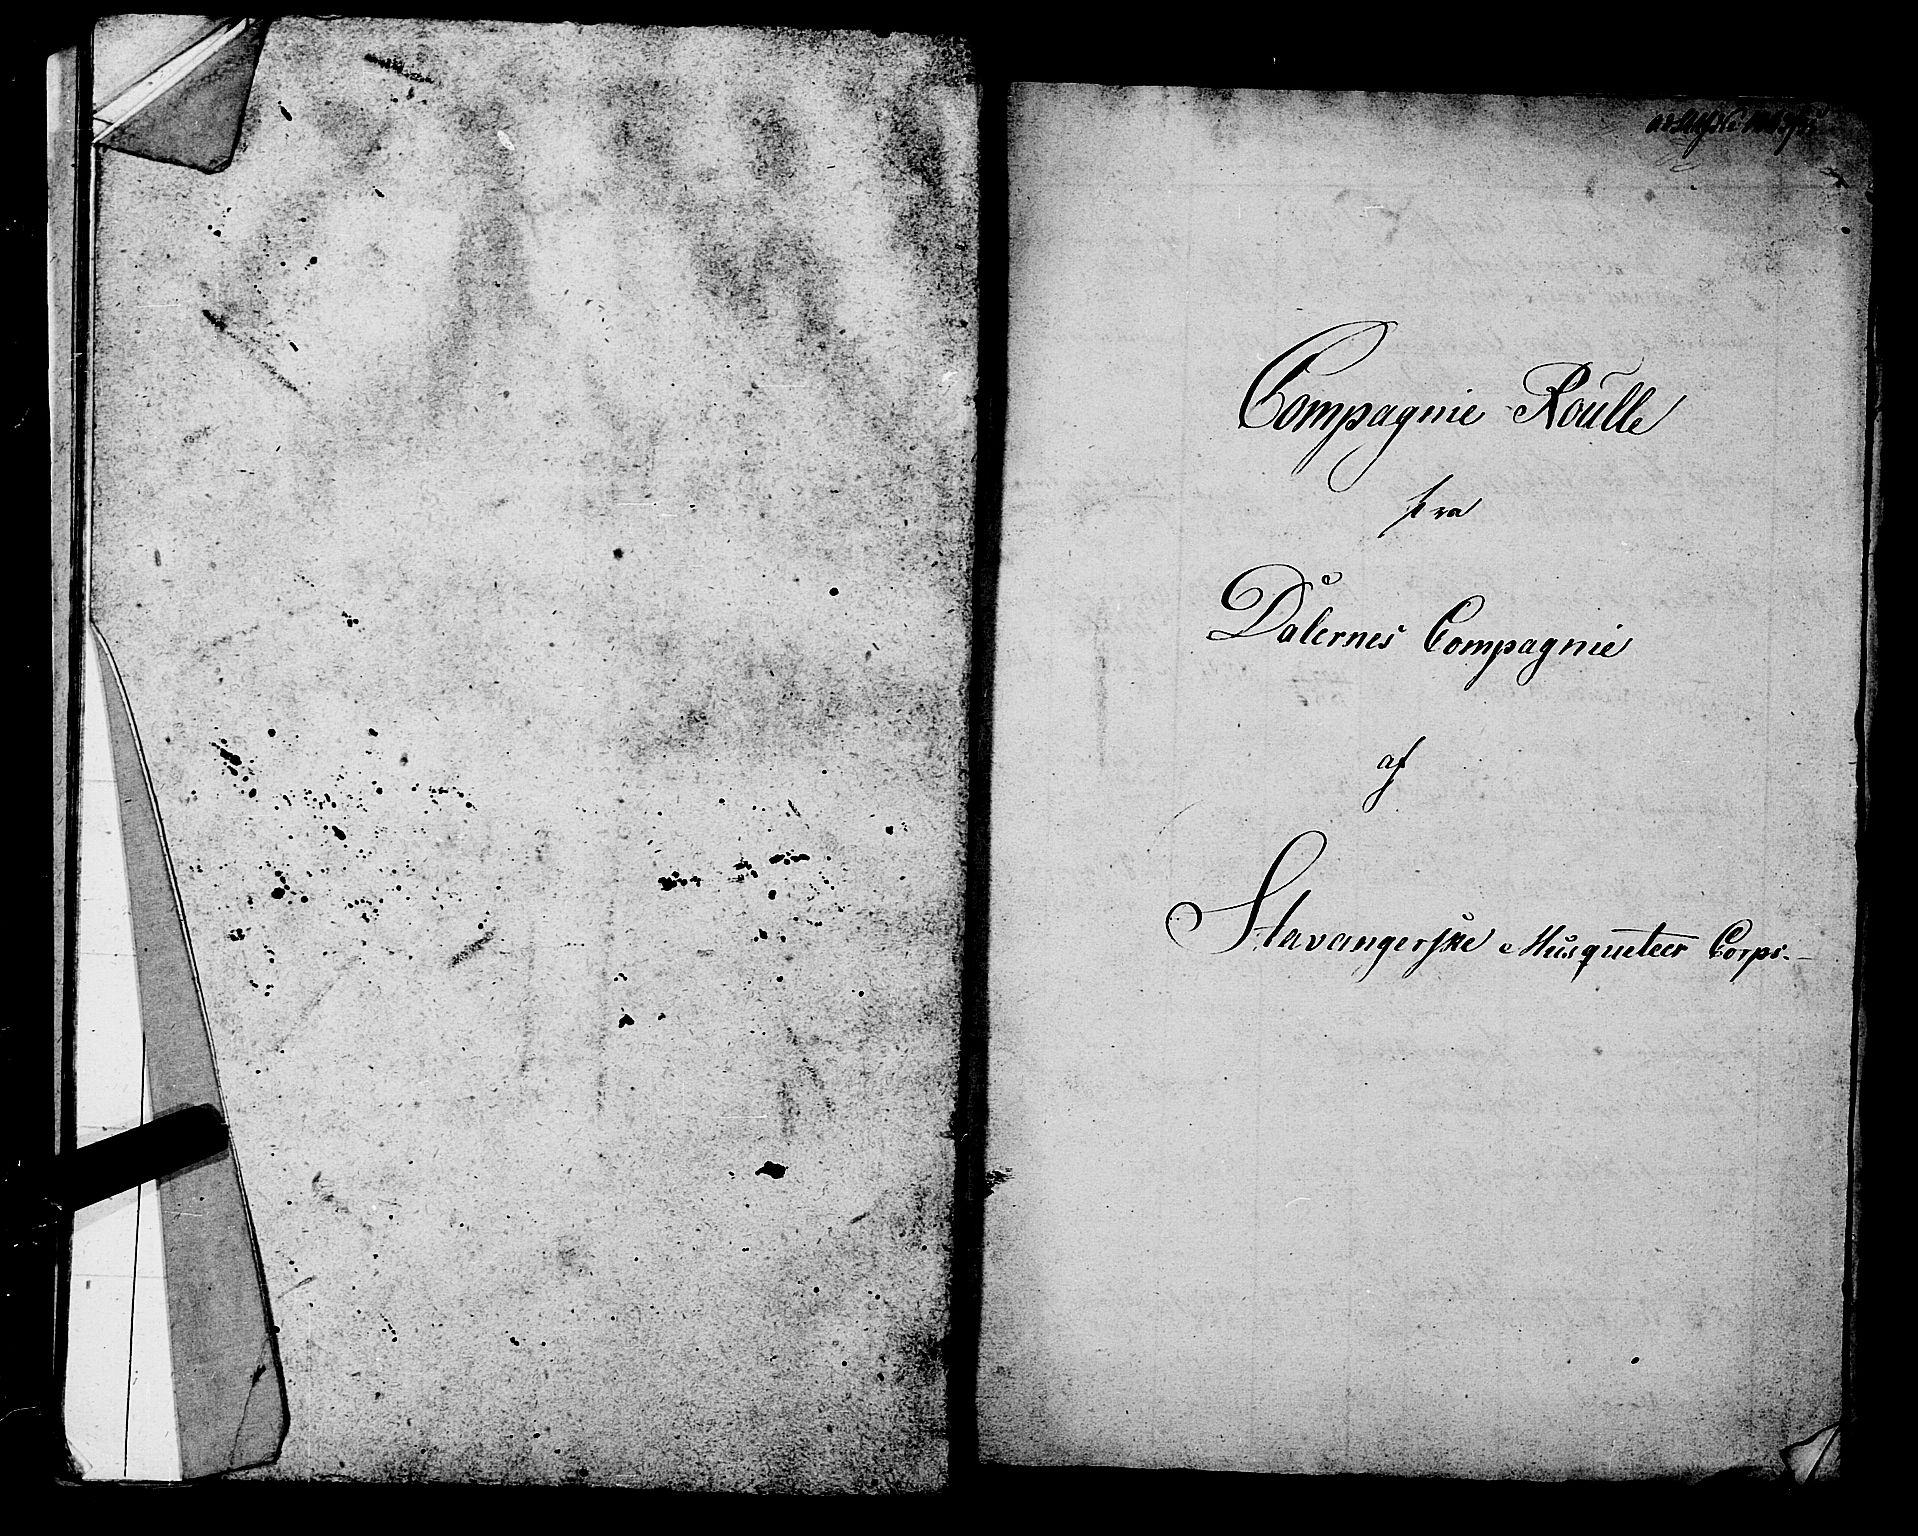 Compagnie Roulle
fra
Dalernes Compagnie
af
Stavangerske Musqueteer Corps.